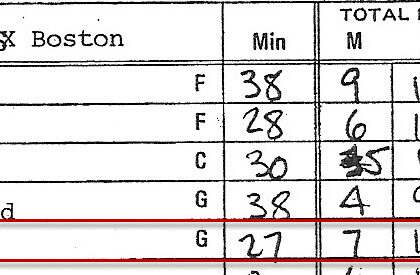 TOTAL
X Boston Min M
F 38 9
F 28 6
C 30 5
G 38 4
d
G 27 7